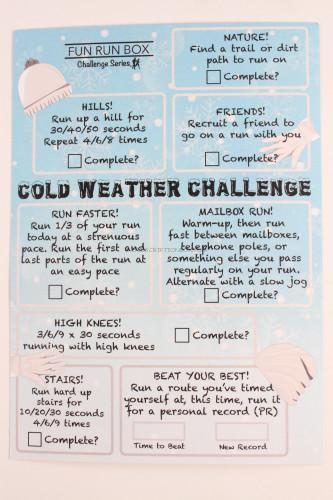 FUN RUN BOX
Challenge Series
NATURE!
Find a trail or dirt
path to run on
Complete?
HILLS!
Run up a hill for
30/40/50 seconds
Repeat 4/6/8 times
Complete?
FRIENDS!
Recruit a friend to
go on a run with you
Complete?
COLD WEATHER CHALLENGE
RUN FASTER!
Run 1/3 of your run
today at a strenuous
pace. Run the first and
last parts of the run at
an easy pace
Complete?
MAILBOX RUN!
Warm-up, then run
fast between mailboxes,
telephone poles, or
something else you pass
regularly on your run.
Alternate with a slow jog
Complete?
HIGH KNEES!
3/6/9 x 30 seconds
running with high knees
Complete?
STAIRS!
Run hard up
stairs for
10/20/30 seconds
4/6/9 times
Complete?
BEAT YOUR BEST!
Run a route you've timed
yourself at, this time, run it
for a personal record (PR)
Time to Beat
New Record